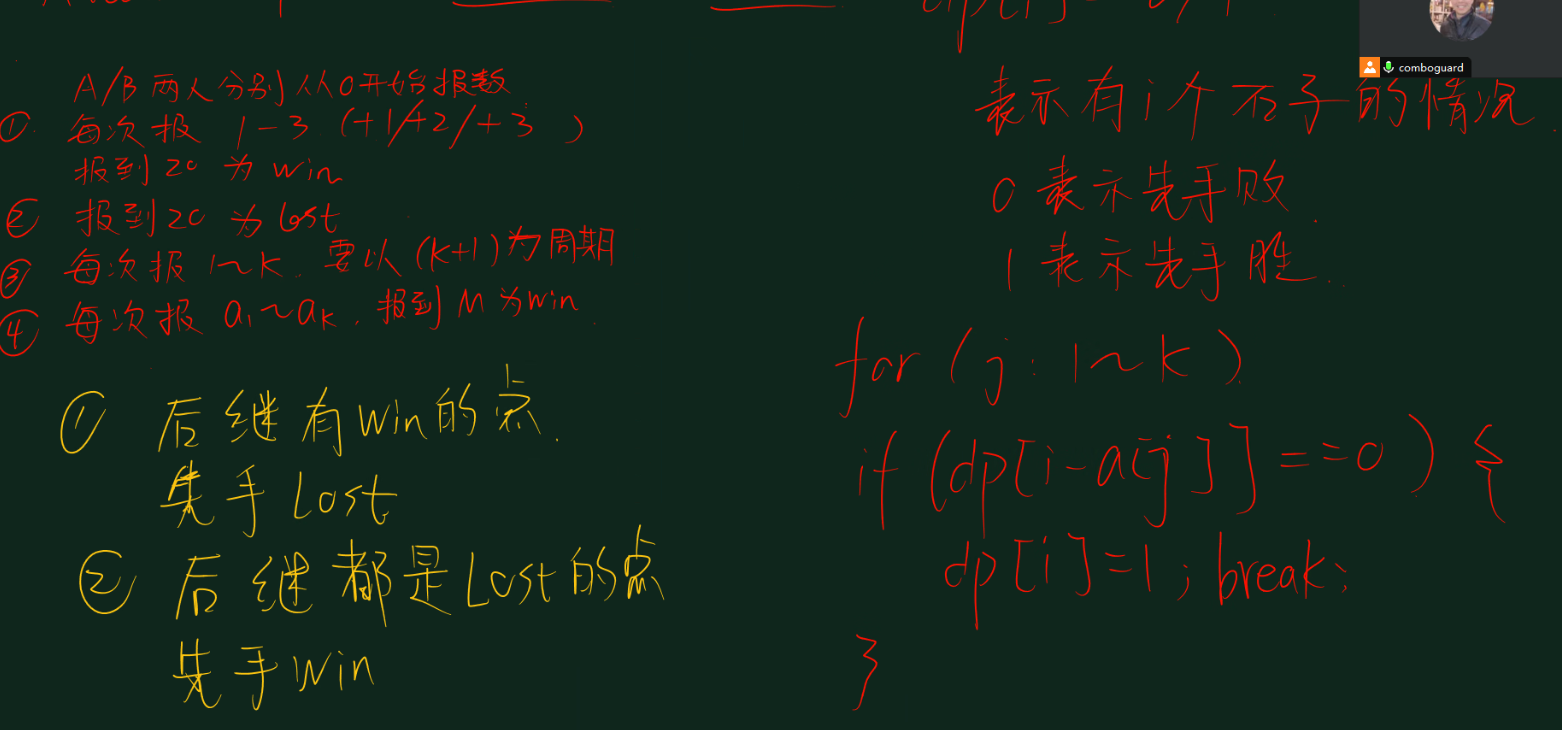 dp[i]
comboguard
A/B两人分别从0开始报数
① 每次报 1-3.(+1/+2/+3)
报到20为win
② 报到20为Lost
③ 每次报1~k.要以(k+1)为周期
④ 每次报 a₁~aₖ.报到M为win.
① 后继有win的点.
先手Lost
② 后继都是Lost的点
先手win
表示有i个石子的情况.
0表示先手败.
1表示先手胜..
for(j:1~k)
if(dp[i-a[j]]==0){
dp[i]=1;break;
}